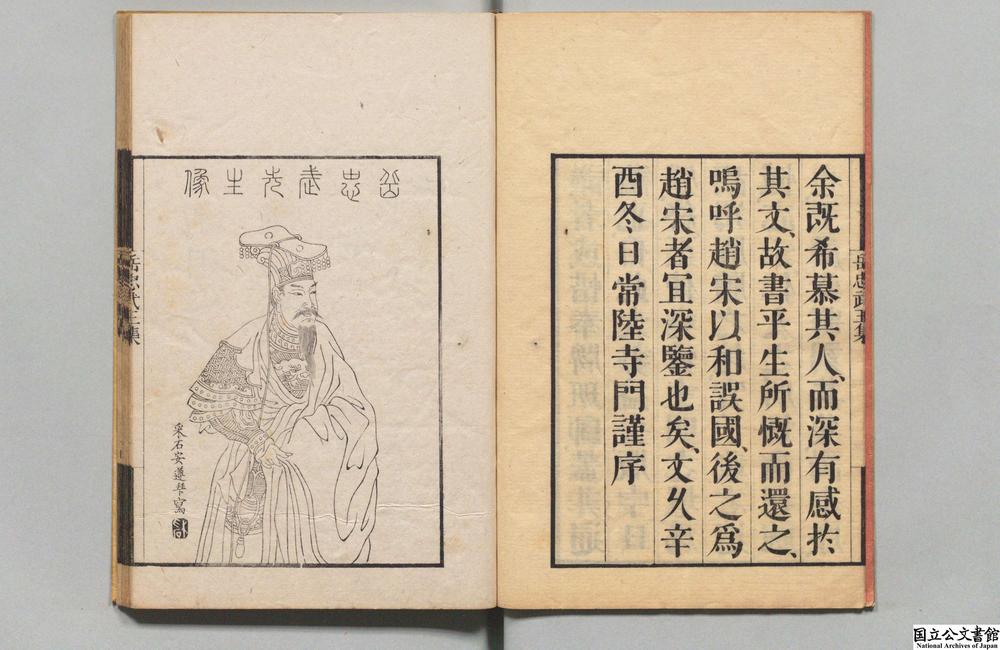 余既希慕其人、而深有感於
其文、故書平生所慨而還之、
嗚呼趙宋以和誤國、後之爲
趙宋者冝深鑒也矣、文久辛
酉冬日常陸寺門謹序
岳忠武王集
岳忠武先生像
采石安遵古寫
岳忠武王集
国立公文書館
National Archives of Japan